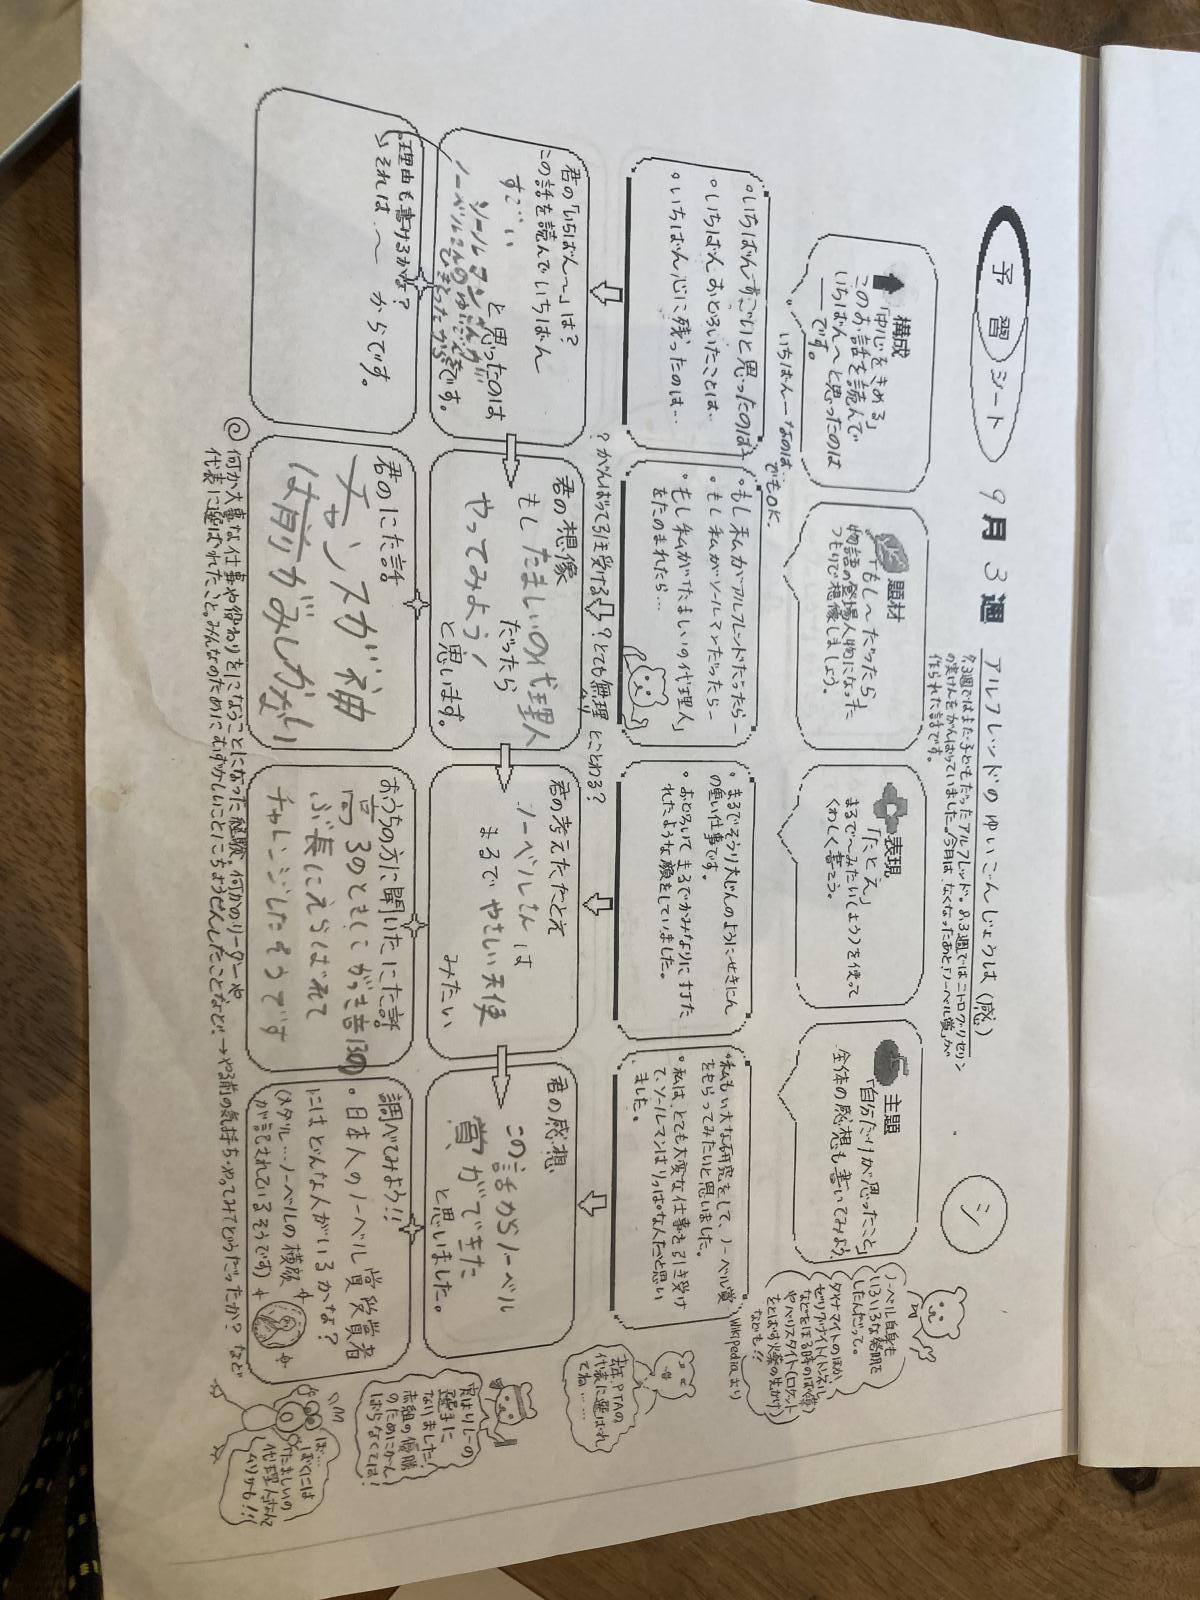 予習シート
9月3週
アルフレッドのゆいごんじょうは(感)
シ
8.3週ではまだ子どもだったアルフレッド。8.3週ではニトログリセリン
の実けんをがんばっていました。今月は、なくなったあと「ノーベル賞」が
作られた話です。
構成
「中心をきめる」
このお話を読んで
いちばん〜と思ったのは
です。
いちばん―なのは…
でもOK。
題材
「もし〜だったら」
物語の登場人物になった
つもりで想像しましょう。
表現
「たとえ」
まるで〜みたい(よう)を使って
くわしく書こう。
主題
「自分だけが思ったこと」
全体の感想も書いてみよう
ノーベル自身も
いろいろな発明を
したんだって。
ダイナマイトのほか
などをほる時のばく薬)
やバリスタイト(ロケット
をとばす火薬の先がけ)
なども!!
Wikipediaより
・いちばんすごいと思ったのは…
・いちばんおどろいたことは…
・いちばん心に残ったのは…
・もし私がアルフレッドだったら―
・もし私がソールマンだったら―
・もし私が「たましいの代理人」
をたのまれたら…
・まるでそうり大じんのようにせきにん
の重い仕事です。
・おどろいてまるでかみなりに打た
れたような顔をしていました。
・私もい大な研究をして、ノーベル賞
をもらってみたいと思いました。
・私は、とても大変な仕事を引き受け
て、ソールマンはりっぱな人だと思い
ました。
?がんばって引き受ける?
?とても無理
とことわる?
去年、PTAの
代表に選ばれ
てね……
君の「いちばん〜」は?
この話を読んでいちばん
すごい
と思ったのは
ソールマンさんが
です。
君の想像
もしたましいの代理人
だったら
やってみよう!
と思います。
君の考えたたとえ
ノーベルさんは
まるでやさしい天使
みたい
君の感想
この話からノーベル
賞ができた
と思いました。
実はリレーの
選手に
なりました!
赤組の優勝
のためにがん
ばらなくては!
理由も書けるかな?
それは、〜からです。
君のにた話
チャンスの神
は前がみしかない
おうちの方に聞いたにた話
高3のときにがっき音10の
ぶ長にえらばれて
チャレンジしたそうです
調べてみよう!!
・日本人のノーベル賞受賞者
にはどんな人がいるかな?
(メダル…ノーベルの横顔
が記されているそうです)
ぼ…
ぼくには
たましいの
代理人なんて
ムリかも!!!
何か大事な仕事や役わりをになうことになった経験。何かのリーダーや
代表に選ばれたこと。みんなのためにむずかしいことにちょうせんしたことなど。→やる前の気持ち・やってみてどうだったか?など